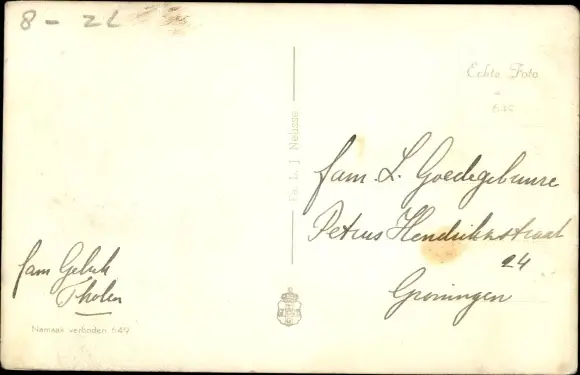 8 - 22
Echte Foto
649
Fa. L. J. Nelisse
fam. L. Goedegebuure
Petrus Hendrikzstraat
24
Groningen
fam Geluk
Tholen
Namaak verboden 649